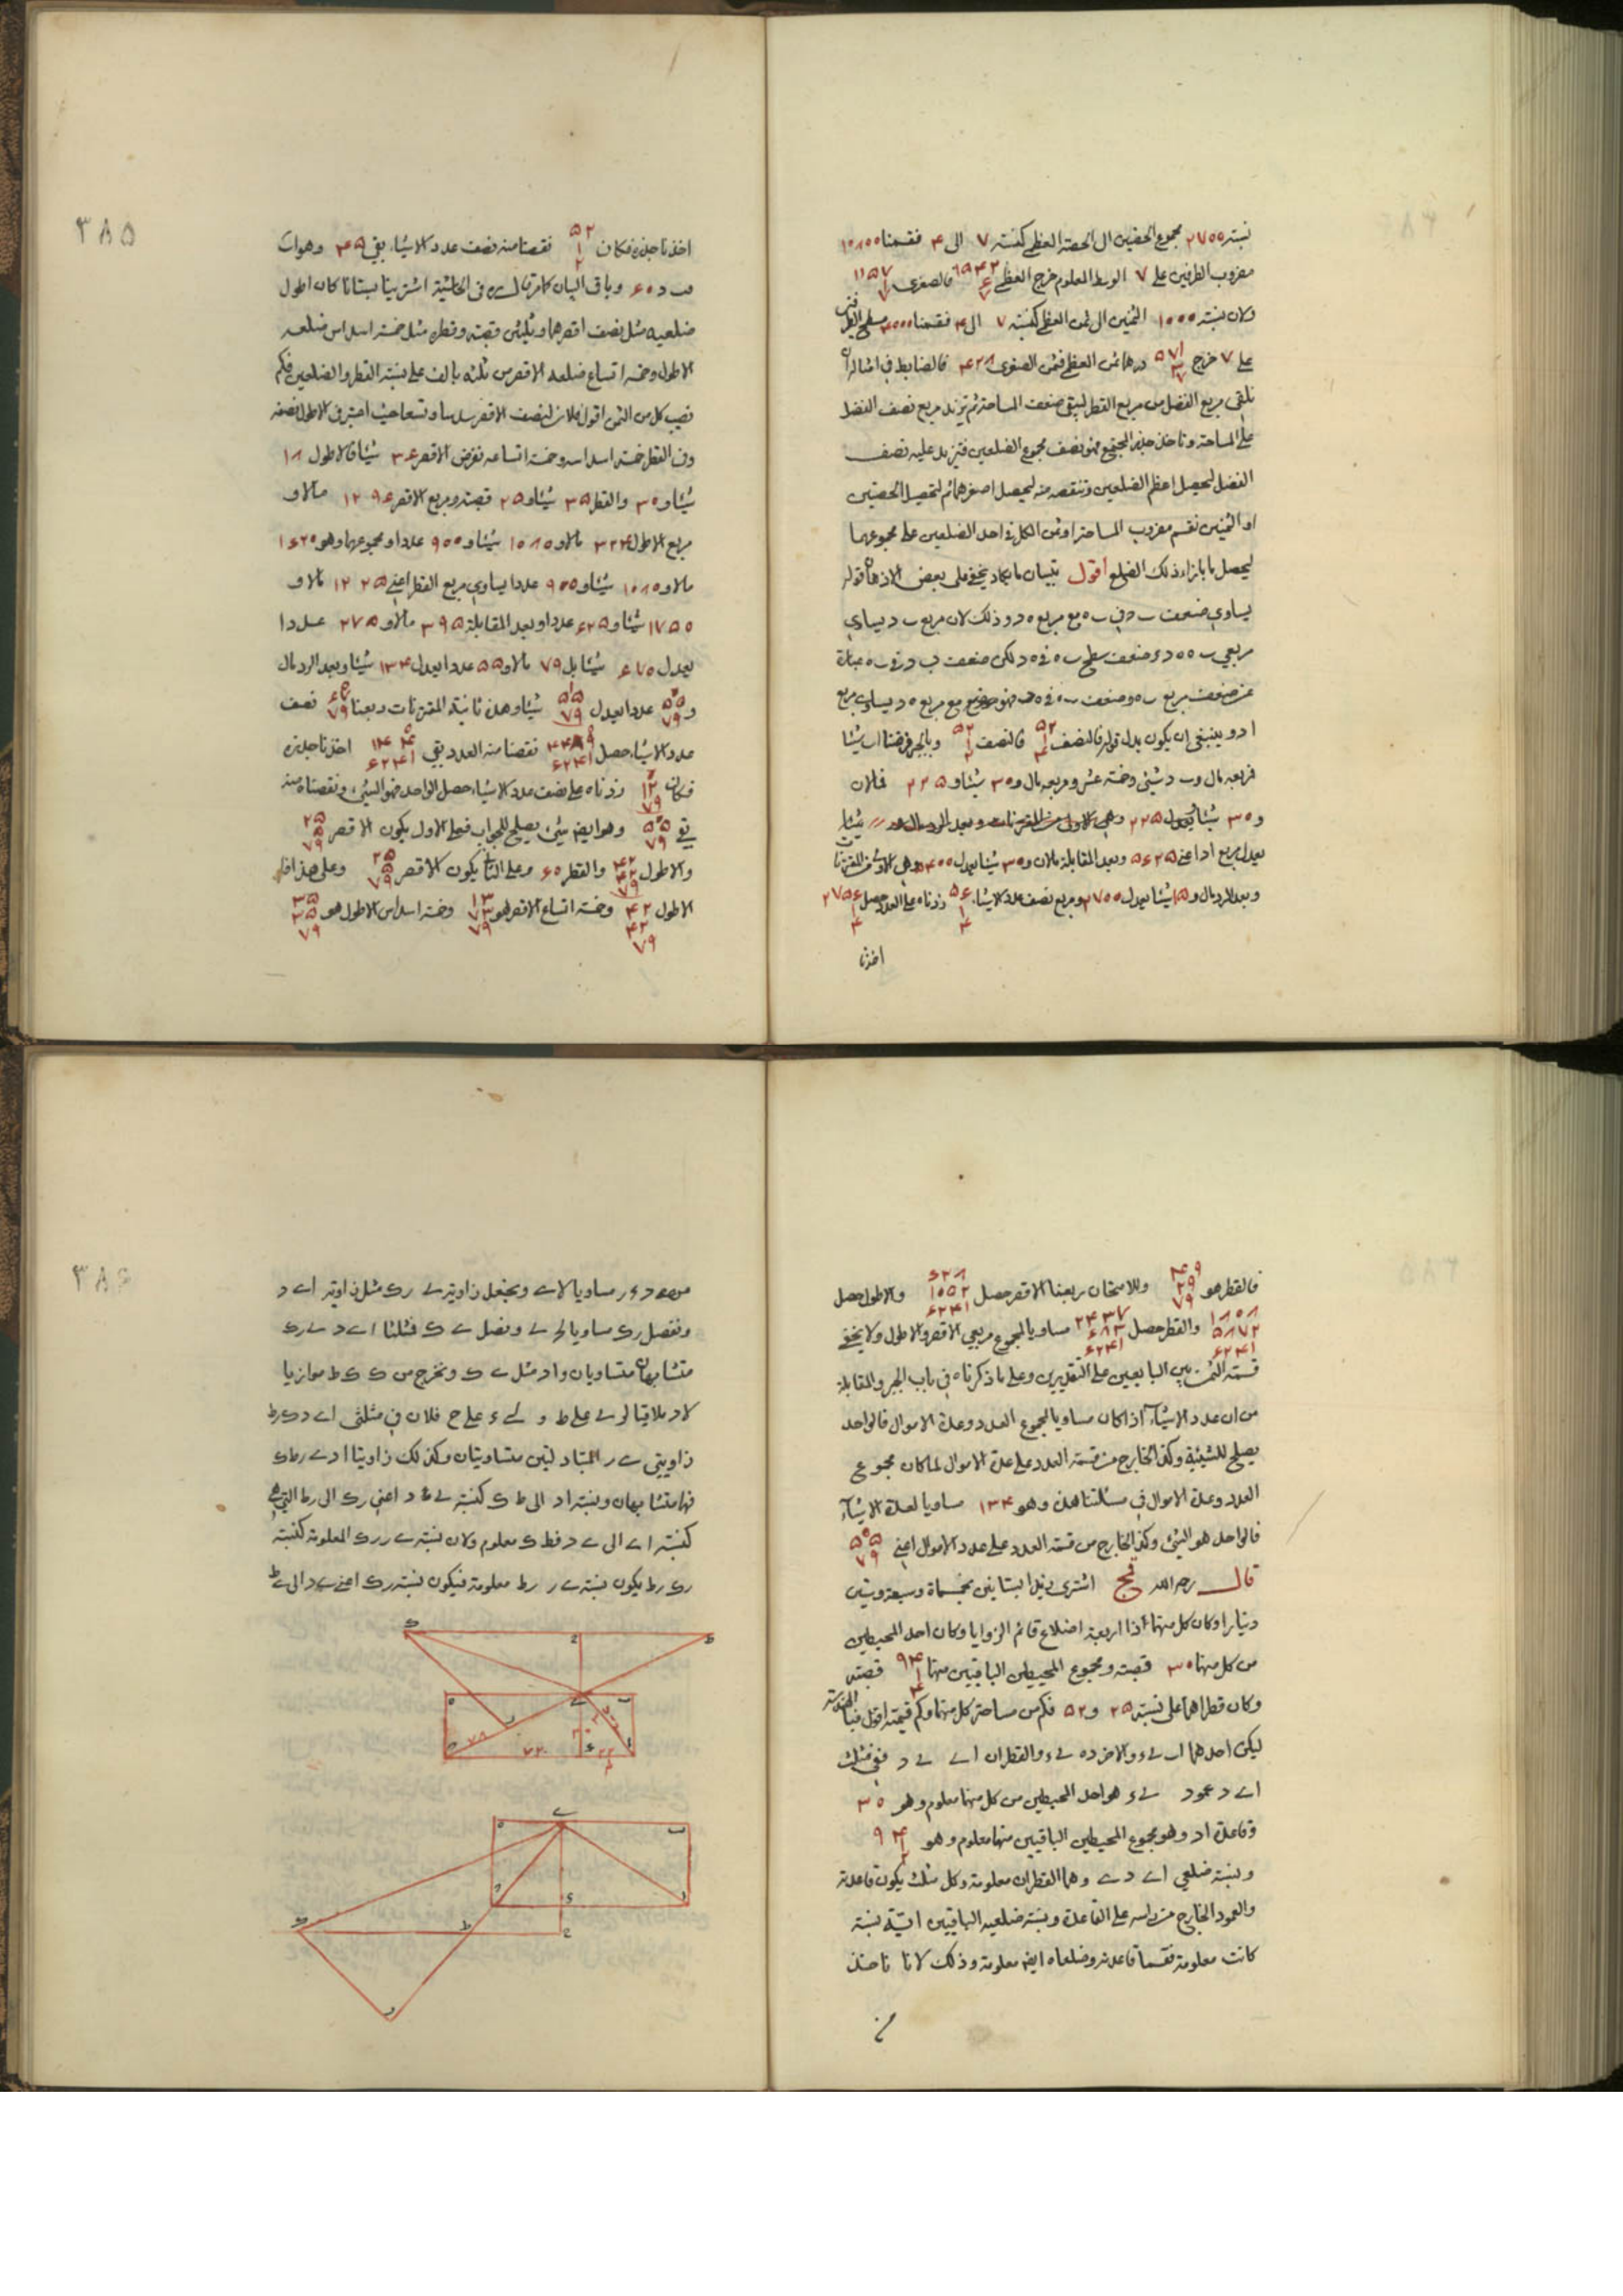 نسبته ٢٧٠٠ مجموع الحصتين الى الحصة العظمى كنسبة ٧ الى ٤ فقسمنا ١٠٨٠٠
مضروب الطرفين على ٧ الوسط المعلوم خرج العظمى فالصغرى
ولان نسبته ١٠٠٠ الثمنين الى ثمن العظمى كنسبة ٧ الى ٤ فقسمنا ٤٠٠٠ مسطح الطرفين
على ٧ خرج ٥٧١ ٣ ٧ درهما ثمن العظمى فثمن الصغرى ٤٢٨ فالضابط في امثاله ان
نلقى مربع الفضل من مربع القطر ليبقى ضعف المساحة ثم نزيد مربع نصف الفضل
على المساحة وناخذ جذر المجتمع فهو نصف مجموع الضلعين فنزيد عليه نصف
الفضل ليحصل اعظم الضلعين وننقصه منه ليحصل اصغرهما ثم لتحصيل الحصتين
او الثمنين نقسم مضروب المساحة او ثمن الكل في احد الضلعين على مجموعهما
ليحصل ما بازاء ذلك الضلع اقول تبيان ما عساه يخفى على بعض الاذهان قوله
يساوي ضعف ب د في ب ه مع مربع ه د وذلك لان مربع ب د يساوي
مربعي ب ه ه د وضعف سطح ب ه في ه د لكن ضعف ب د في ب ه عبارة
عن ضعف مربع ب ه وضعف ب ه في ه د فهو مع مربع ه د يساوي مربع
ا د وينبغي ان يكون بدل قوله فالنصف ٥٢ ١ ٤ فالنصف ٥٢ ١ ٢ وبالجبر فرضنا اب شيئا
فربعه مال و ب د شيئى وخمسة عشر ومربعه مال و ٣٠ شيئا و ٢٢٥ فمالان
و ٣٠ شيئا و ٢٢٥
يعدل مربع ا د اعني ٥٦٢٥ وبعد المقابلة مالان و ٣٠ شيئا يعدل ٥٤٠٠ وهي الاولى من المقترنات
وبعد الرد مال و ١٥ شيئا يعدل ٢٧٠٠ ومربع نصف عدد الاشياء ٥٦ ١ ٤ زدناه على العدد حصل ٢٧٥٦ ١ ٤
اخذنا
٣٨٥
اخذنا جذره فكان ٥٢ ١ ٢ نقصنا منه نصف عدد الاشياء بقي ٤٥ وهو اب
فب د ٦٠ وباقي البيان كما مر قال ره في الحاشية اشترينا بستانا كان اطول
ضلعيه مثل نصف اقصرهما وثلثين قصبة وقطره مثل خمسة اسداس ضلعه
الاطول وخمسة اتساع ضلعه الاقصر من ثلثة بالف على نسبة القطر والضلعين فكم
نصيب كل من الثمن اقول فلان لنصف الاقصر سدسا وتسعا حيث اعتبر في الاطول نصفه
وفي القطر خمسة اسداسه وخمسة اتساعه نفرض الاقصر ٣٦ شيئا فالاطول ١٨
شيئا و ٣٠ والقطر ٣٥ شيئا و ٢٥ قصبة ومربع الاقصر ١٢٩٦ مالا و
مربع الاطول ٣٢٤ مالا و ١٠٨٠ شيئا و ٩٠٠ عددا ومجموعهما وهو ١٦٢٠
مالا و ١٠٨٠ شيئا و ٩٠٠ عددا يساوي مربع القطر اعني ١٢٢٥ مالا و
١٧٥٠ شيئا و ٦٢٥ عددا وبعد المقابلة ٣٩٥ مالا و ٢٧٥ عددا
يعدل ٦٧٠ شيئا بل ٧٩ مالا و ٥٥ عددا يعدل ١٣٤ شيئا وبعد الرد مال
و ٥٥ ٧٩ عددا يعدل ١ ٥٥ ٧٩ شيئا وهذه ثانية المقترنات ربعنا ٦٧ ٧٩ نصف
عدد الاشياء حصل ٤٤٨٩ ٦٢٤١ نقصنا منه العدد بقي ١٤٤ ٦٢٤١ اخذنا جذره
فكان ١٢ ٧٩ زدناه على نصف عدد الاشياء حصل الواحد فهو الشيئ ونقصناه منه
بقي ٥٥ ٧٩ وهو ايضا شيئ يصلح للجواب فعلى الاول يكون الاقصر
والاطول ٤٢ ٤٢ ٧٩ والقطر ٦٠ وعلى الثاني يكون الاقصر ٢٥ ٥ ٧٩ وعلى هذا فا
الاطول ٤٢ ٤٢ ٧٩ وخمسة اتساع الاقصر هو ١٣ ٧٣ ٧٩ وخمسة اسداس الاطول هو ٣٥ ٣٥ ٧٩
فالقطر هو ٤٩ ٢٩ ٧٩ وللامتحان ربعنا الاقصر حصل ٦٢٨ ١٠٥٢ ٦٢٤١ والاطول حصل
١٨٠٨ ٥٨٧٢ ٦٢٤١ والقطر حصل ٢٤٣٧ ٦٨٣ ٦٢٤١ مساويا لمجموع مربعي الاقصر والاطول ولا يخفى
قسمة الثمن بين البايعين على التقديرين وعلى ما ذكرناه في باب الجبر والمقابلة
من ان عدد الاشياء اذا كان مساويا لمجموع العدد وعدة الاموال فالواحد
يصلح للشيئية وكذا الخارج من قسمة العدد على عدة الاموال لما كان مجموع
العدد وعدة الاموال في مسئلتنا هذه وهو ١٣٤ مساويا لعدة الاشياء
فالواحد هو الشيئ وكذا الخارج من قسمة العدد على عدد الاموال اعني ٥٥ ٧٩
قال رحمه الله اشترى زيد البستانين بخمسماة وسبعة وستين
دينارا وكان كل منهما ذا اربعة اضلاع قائم الزوايا وكان احد المحيطين
من كل منهما ٣٠ قصبة ومجموع المحيطين الباقيين منهما ٩٤ ١ ٢ قصبة
وكان قطراهما على نسبة ٢٥ و ٥٢ فكم من مساحة كل منهما وكم قيمته اقول
ليكن احدهما اب ے ء والاخر د ه ے ء والقطران اے ے د ففي مثلث
اے د عمود ے ء هو احد المحيطين من كل منهما معلوم وهو ٣٠
وقاعدة اد وهو مجموع المحيطين الباقيين منهما معلوم وهو ٩٤ ١ ٢
ونسبة ضلعي اے د ے وهما القطران معلومة وكل مثلث يكون قاعدته
والعمود الخارج من راسه على القاعدة ونسبة ضلعيه الباقيين اية نسبة
كانت معلومة فقسما قاعدته وضلعاه ايضا معلومة وذلك لانا ناخذ
٣٨٦
من ے د ے ر مساويا لاے ونجعل زاوية ے ر ك مثل زاوية اے د
ونفصل رك مساويا لے د ونصل ے ك فمثلثا اے د ے رك
متشابهان متساويان واد مثل ے ك ونخرج من ك ك ط موازيا
لاد ملاقيا لر ے على ط و لے ء على ح فلان في مثلثي اے د ك ر ط
زاويتي ے ر المتبادلتين متساويتان وكذلك زاويتا ا د ے ر ط ك
فهما متشابهان ونسبة اد الى ط ك كنسبة ے د اعني رك الى رط التي هي
كنسبة اے الى ے د فط ك معلوم ولان نسبة ے ر رك المعلومة كنسبة
رك رط يكون نسبة ے ر رط معلومة فيكون نسبة رك اعني ے د الى ے ط